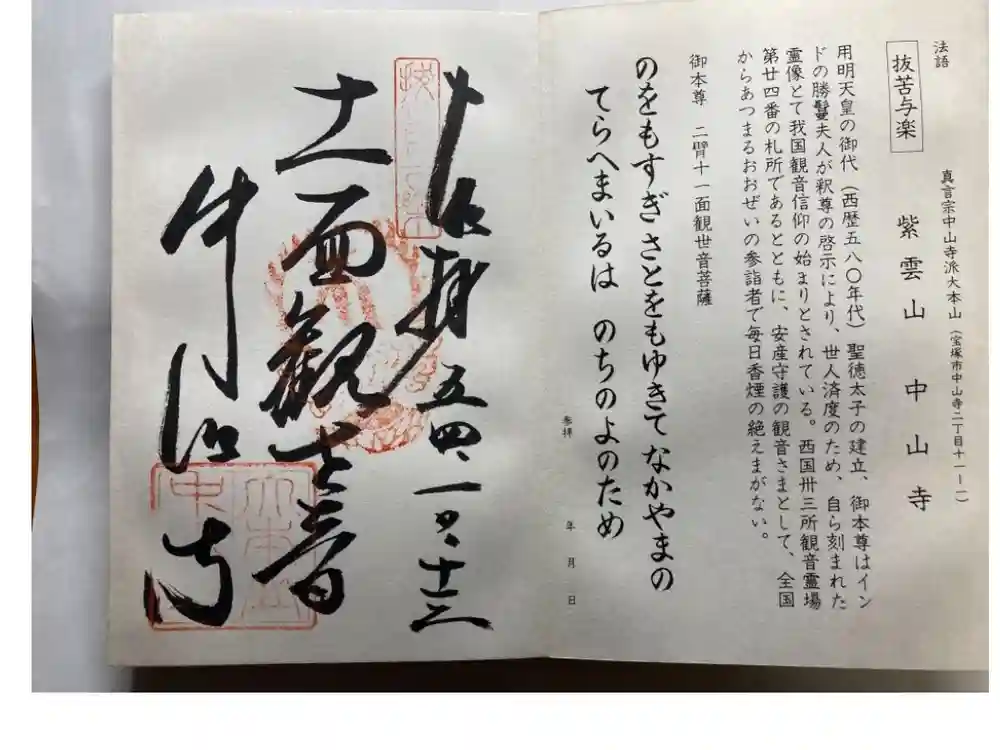 法語
抜苦与楽
真言宗中山寺派大本山（宝塚市中山寺二丁目十一ー一）
紫雲山中山寺
用明天皇の御代（西歴五八〇年代）聖徳太子の建立、御本尊はイン
ドの勝鬘夫人が釈尊の啓示により、世人済度のため、自ら刻まれた
霊像とて我国観音信仰の始まりとされている。西国卅三所観音霊場
第廿四番の札所であるとともに、安産守護の観音さまとして、全国
からあつまるおおぜいの参詣者で毎日香煙の絶えまがない。
御本尊　二臂十一面観世音菩薩
のをもすぎさとをもゆきてなかやまの
てらへまいるは　のちのよのため
参拝　年　月　日
奉拝
十一面観世音
中山寺